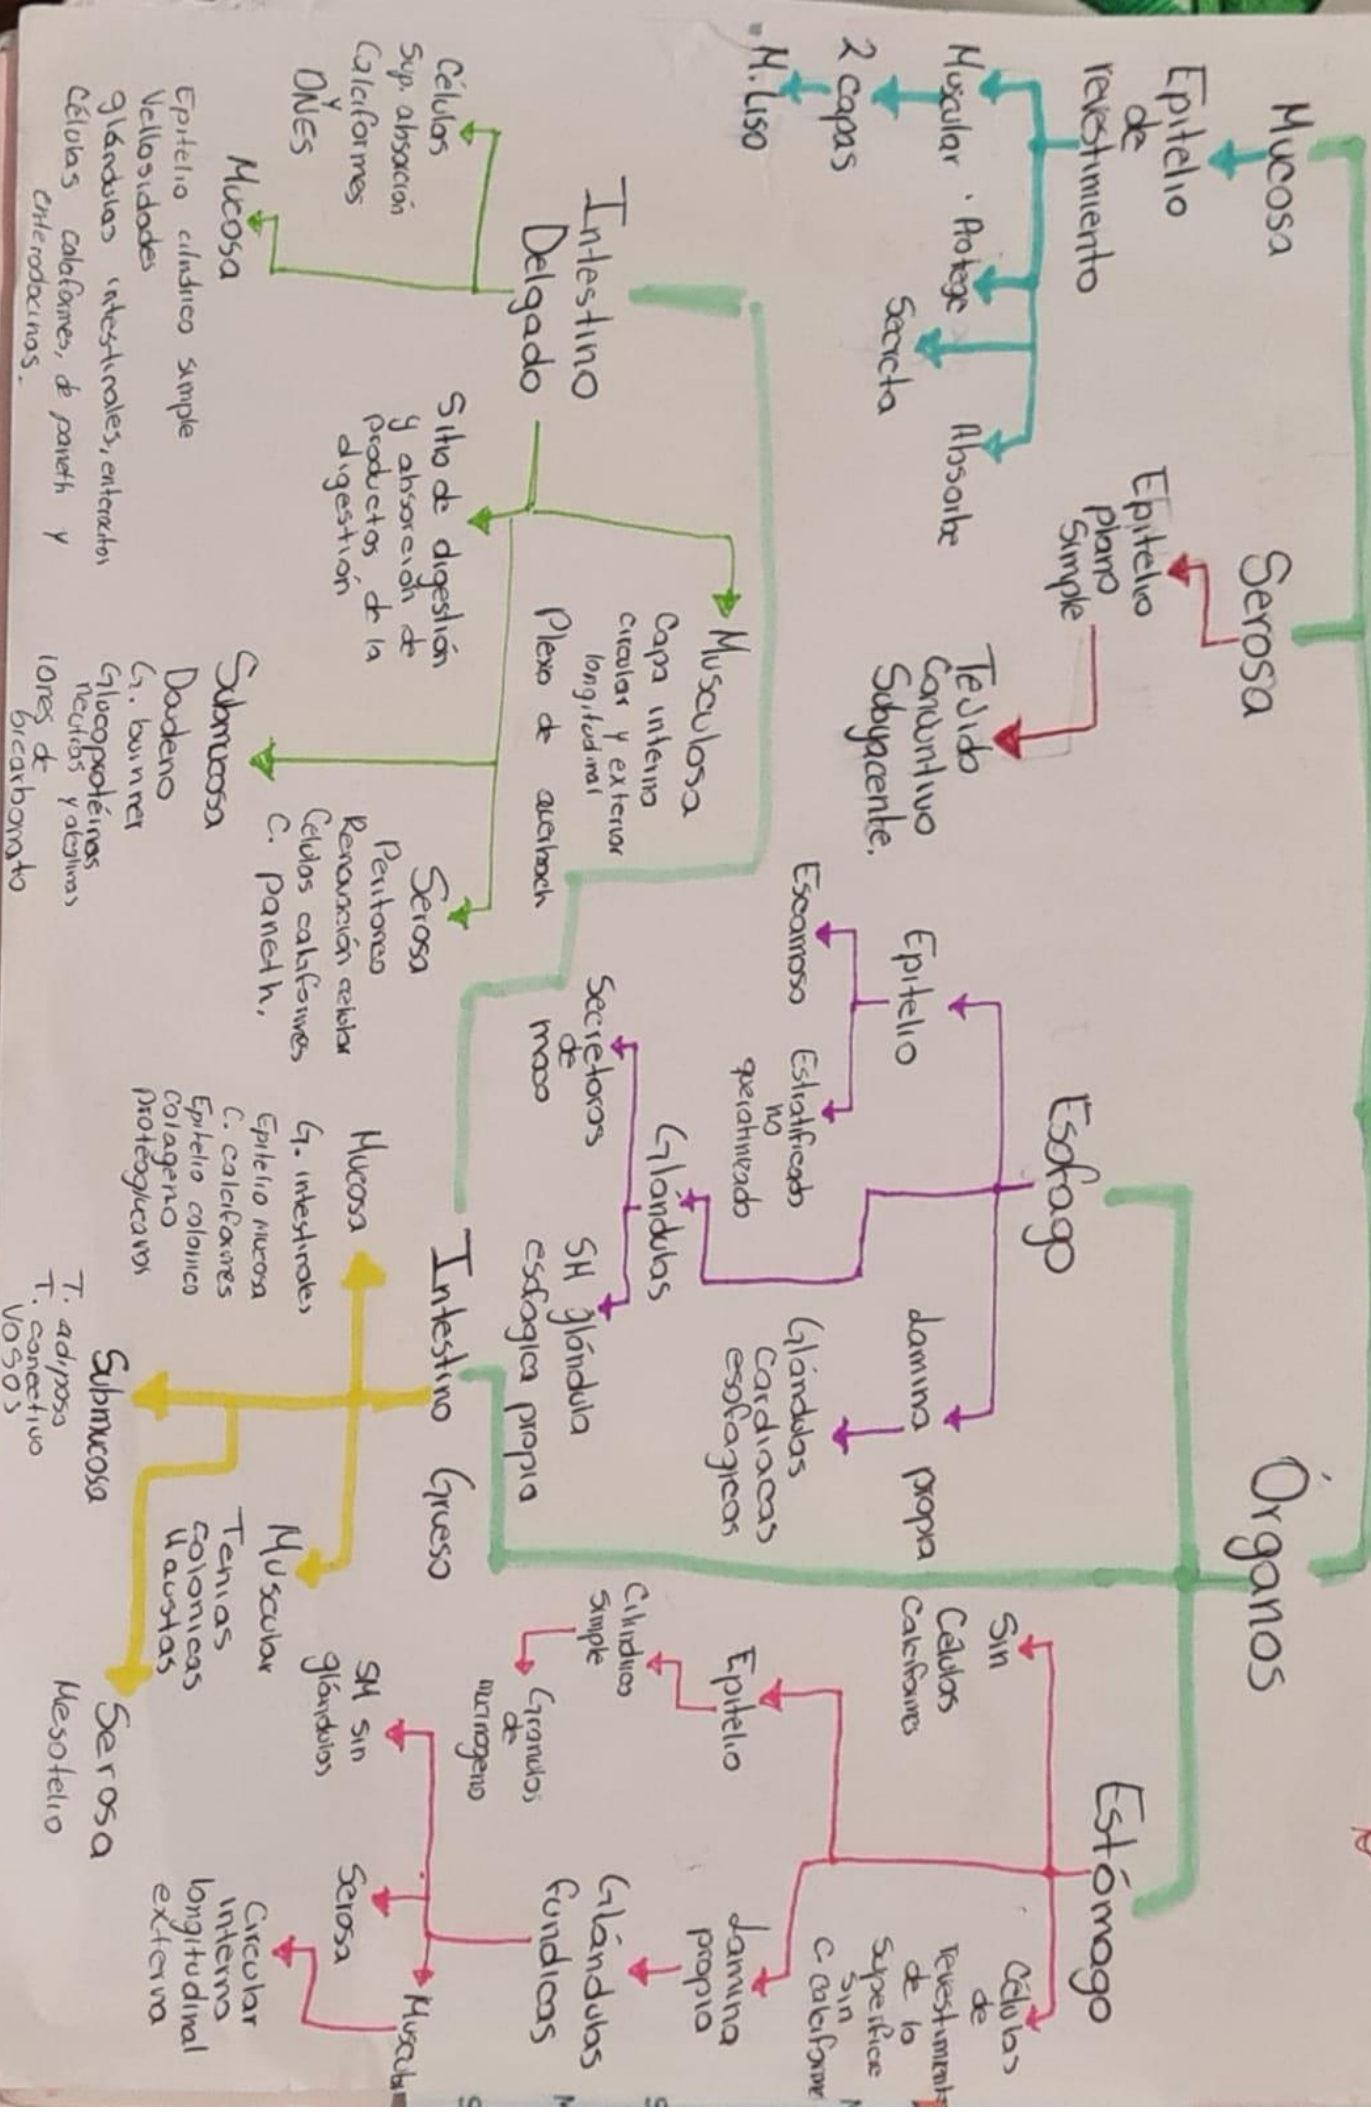 Mucosa
Epitelio
de
revestimiento
Muscular
2 capas
M. Liso
Protege
Secreta
Absorbe
Serosa
Epitelio
plano
Simple
Tejido
Conjuntivo
Subyacente.
Órganos
Esófago
Epitelio
Escamoso
Estratificado
no
queratinizado
Glándulas
Secretoras
de
moco
SM glándula
esofágica propia
Lamina propia
Glándulas
Cardiacas
esofagicas
Estómago
Sin
Células
Calciformes
Células
de
revestimiento
de la
superificie
Sin
C caliciforme
Epitelio
Cilindrico
simple
Granulos
de
mucinogeno
Lamina
propia
Glándulas
fúndicas
SM sin
glándulas
Serosa
Muscular
Circular
interna
longitudinal
externa
Intestino
Delgado
Células
Sup. absorción
Calciformes
y
DNES
Mucosa
Epitelio cilíndrico simple
Vellosidades
glándulas intestinales, enterocitos
Células califormes, de paneth y
enterodocinas.
Sitio de digestión
y absorción de
productos de la
digestión
Musculosa
Capa interna
circular y exterior
longitudinal
Plexo de auerbach
Submucosa
Douodeno
G. bunner
Glucoprotéinas
neutras y
Iones de
bicarbonato
Serosa
Peritoneo
Renovación celular
Células califormes
C. paneth.
Intestino Grueso
Mucosa
G. intestinales
Epitelio mucosa
C. calciformes
Epitelio colonico
Colageno
Proteoglucanos
Submucosa
T. adiposo
T. conectivo
Vasos
Muscular
Tenias
colonicas
Haustas
Serosa
Mesotelio